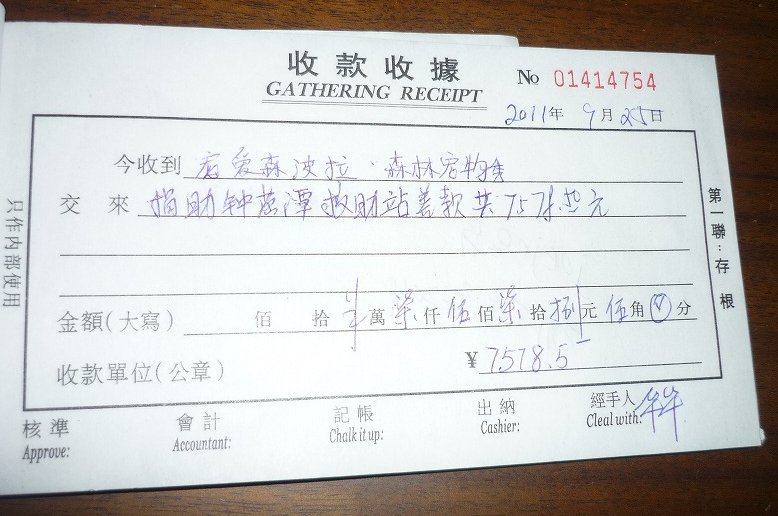 收款收據
GATHERING RECEIPT
No 01414754
2011年 9月 25日
今收到 宠爱森波拉·森林宠物
交來 捐助钟落潭救助站善款共7578.50元
金額(大寫) 佰 拾 萬 柒仟 伍佰 柒拾 捌元 伍角 分
收款單位(公章) ¥7578.5
核準 會計 記帳 出納 經手人
Approve: Accountant: Chalk it up: Cashier: Cleal with:
只作內部使用
第一聯:存根